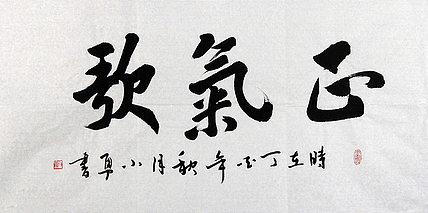 正氣歌
時在丁酉年秋月小草書